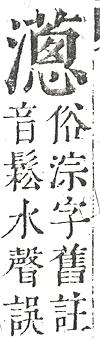 漗
俗淙字舊註
音鬆水聲誤